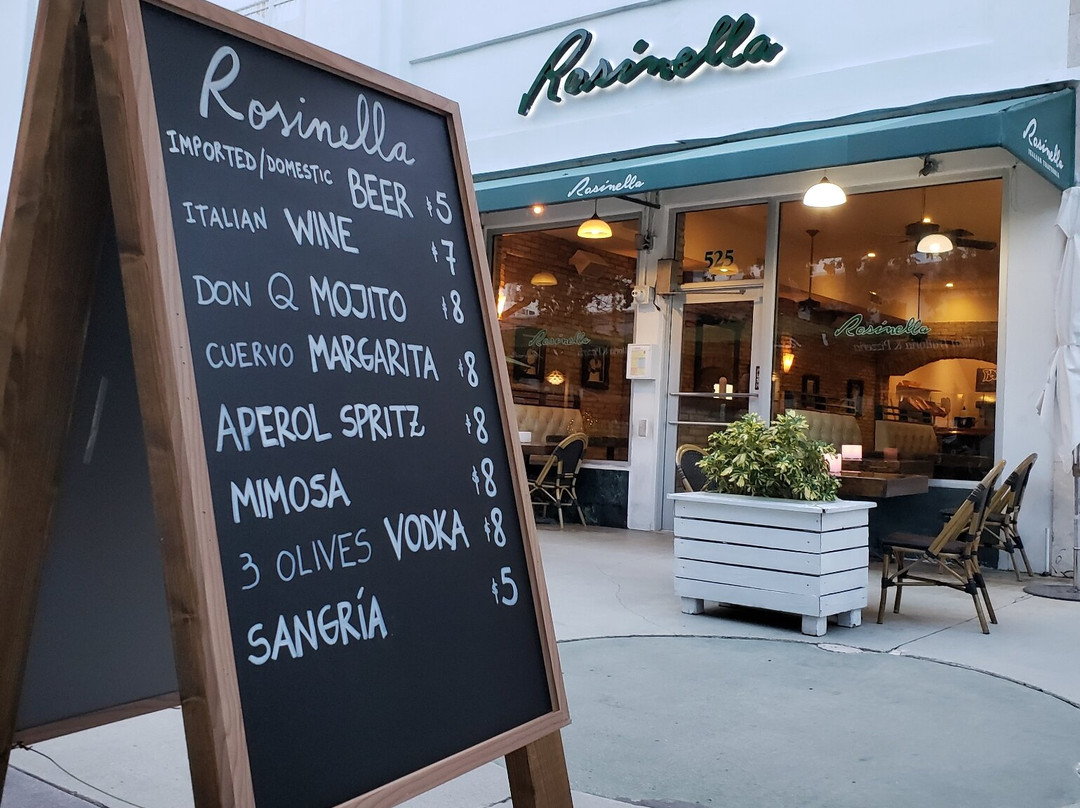 Rosinella
IMPORTED/DOMESTIC BEER $5
ITALIAN WINE $7
DON Q MOJITO $8
CUERVO MARGARITA $8
APEROL SPRITZ $8
MIMOSA $8
3 OLIVES VODKA $8
SANGRÍA $5
Rosinella
Rosinella
Rosinella
525
Rosinella
Rosinella
Trattoria & Pizzeria